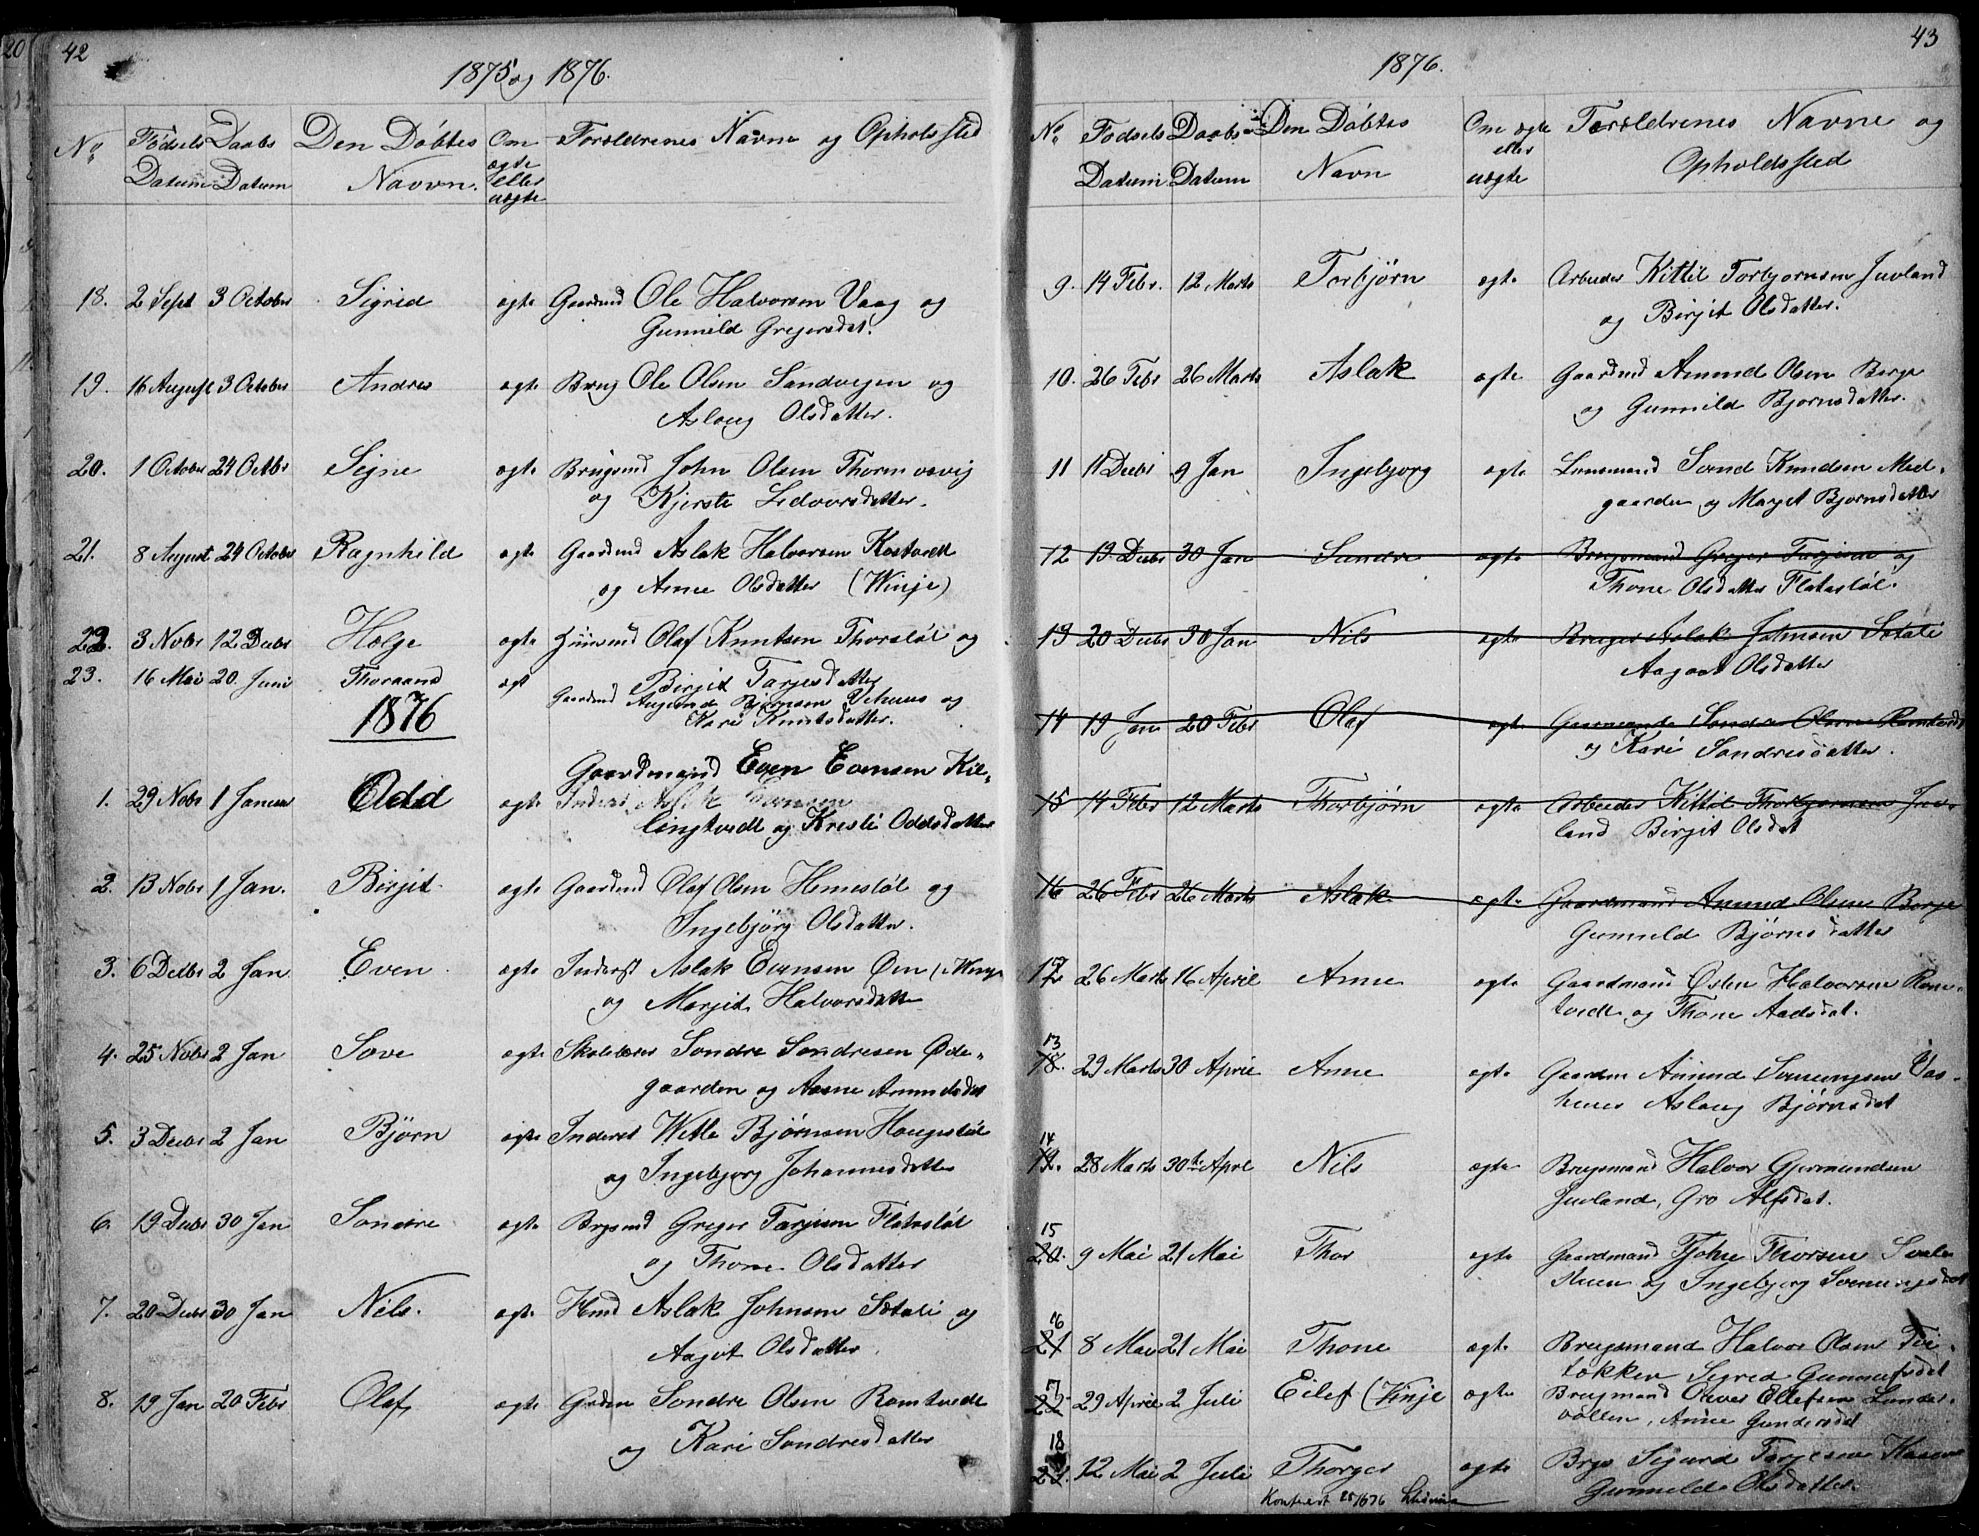 42
1875 og 1876.
No Fødsels Daabs Den Döbtes Om Forældrenes Navne og Opholdssted
Datum Datum Navvn. ægte
eller
uægte
18. 2 Sept 3 October Sigrid ægte Gaardmd Ole Halvorsen Vaag og
Gunnild Gregersdat.
19. 16 August 3 October Andres ægte Brug Ole Olsen Sandvegen og
Aslaug Olsdatter.
20. 1 October 24 Octbr Signe ægte Brugsmd John Olsen
og Kjersti Ledvorsdatter.
21. 8 August 24 October Ragnhild ægte Gaardmd Aslak Halvorsen Kostvedt
og Anne Olsdatter (Winje)
22. 3 Nobr 12 Decbr Helge ægte Huusmd Olaf Knutsen Thorsløl og
Birgit Tarjesdatter
23. 16 Mai 20. Juni ægt Gaardmd Bjørnsen Vehuus og
Kari Knutsdatter.
1876
1. 29 Nobr 1 Januar Odd ægte Gaardmand Even Evensen Kil-
Inderst Aslak Evensen
lingtvedt og Kresti Oddsdatter
2. 13 Nobr 1 Jan. Birgit ægte Gaardmd Olaf Olsen og
Ingebjörg Olsdatter.
3. 6 Decbr 2 Jan Even ægte Inderst Aslak Evensen Øen (Winje
og Margit Halvorsdatte
4. 25 Nobr 2 Jan Sove ægte Skolelærer Sondre Sondresen Øde-
gaarden og Aasne Amundsdat
5. 3 Decbr 2 Jan Bjørn ægte Inderst Wetle Bjørnsen Haugeslöl
og Ingebjorg Johannesdatter
6. 19 Decbr 30 Jan Sondre ægte Brgsmd Greger Tarjesen Flatasløl
og Thone Olsdatter
7. 20 Decbr 30 Jan Nils. ægte Hmd Aslak Johnsen Sotali og
Aagot Olsdatter.
8. 19 Jan 20 Febr Olaf ægte Grdm Sondre Olsen Romtvedt
og Kari Sondresdatter
43
1876.
No Fødsels Daabs Den Döbtes Om ægte Forældrenes Navne og
Datum Datum Navn eller uægte Opholdssted
9. 14 Febr. 12 Marts Torbjørn ægte Arbeider Kittil Torbjornsen Juvland
og Birgit Olsdatter.
10. 26 Febr 26 Marts Aslak ægte Gaardmd Amund Olsen Berge
og Gunnild Bjornsdatter.
11 11 Decbr 9 Jan Ingebjorg ægte Lensmand Svend Knudsen Mid-
gaarden og Margit Bjornsdatter
12 19 Decbr 30 Jan Sundre ægte Brugsmand Greger Tarjesen og
Thone Olsdatter Flatasløl.
13 20 Decbr 30 Jan Nils ægte Bruger Aslak Johnsen Sotali
Aagaat Olsdatter
14 19 Jan 20 Febr Olaf ægte Gaarmand Sondre Olsen Romtvedt
og Kari Sondresdatter.
15 14 Febr 12 Marts Thorbjörn ægte Arbeider Kittil Thorbjornsen Juv-
land Birgit Olsdat
16 26 Febr 26 Marts Aslak ægte Gaardmand Amund Olsen Berge
Gunnild Bjørnsdatter
12 26 Marts 16 April Anne ægte Gaardmand Østen Halvorsen Rom-
tvedt og Thone Aadsdat.
13
18. 29 Marts 30 April Anne ægte Gaardm Amund Sveinungsen Vas-
huus Aslaug Bjørnsdat
14
19. 28 Marts 30te Aprl Nils ægte Brugsmand Halvor Gjermundsen
Juvland, Gro Alfsdat.
15
20. 9 Mai 21 Mai Thor ægte Gaardmand Tjohne Thorsen
og Ingebjorg Sveinungsdat
16
21 8 Mai 21 Mai Thone ægte Brugsmand Halvor Olsen Tvi-
tokken Sigrid Gunnulfsdat
17
22 29 April 2 Juli Eilef (Vinje ægte Brugmand Eilefsen Lunde-
vollen, Anne Gundersdat
18
12 Mai 2 Juli Thorger ægte Brgs Sigurd Tarjesen
Gunnild Olsdatter.
Konfereret 25/8 76